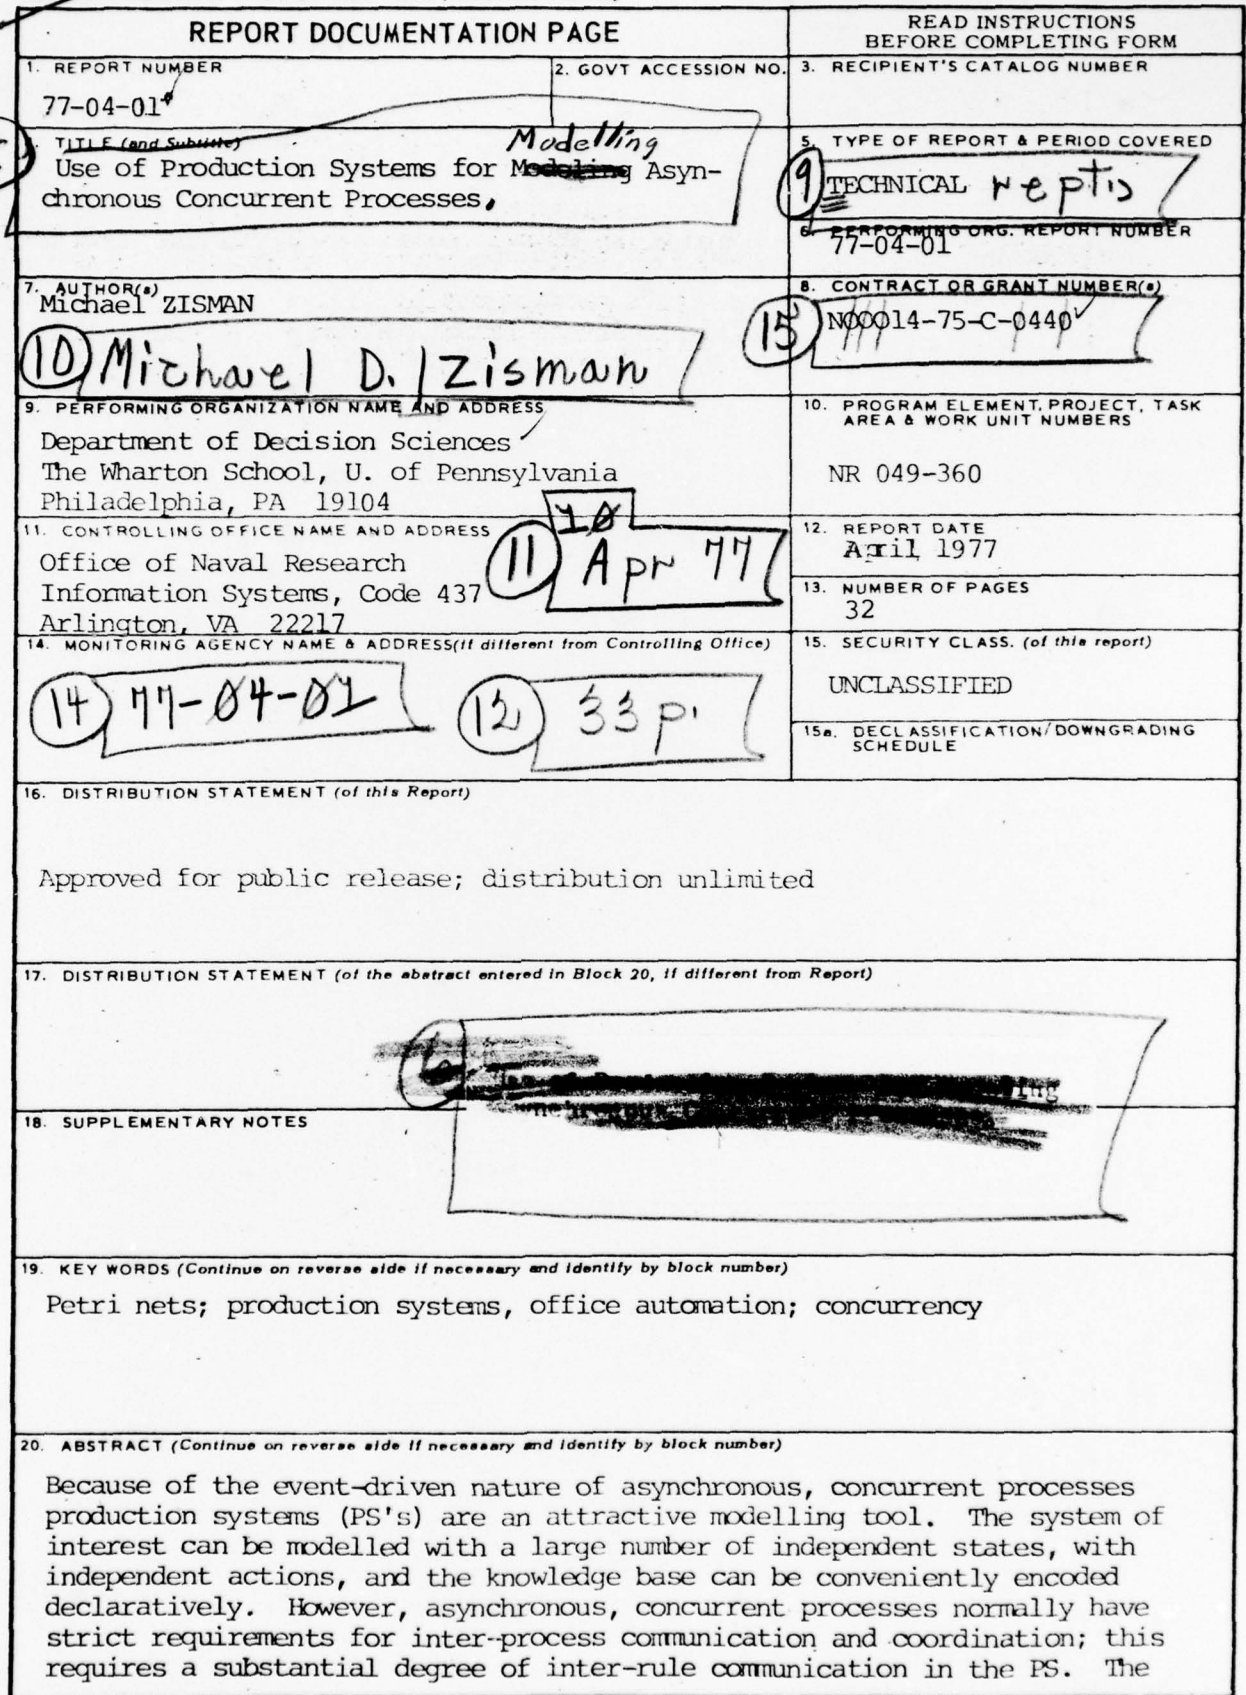 REPORT DOCUMENTATION PAGE
READ INSTRUCTIONS
BEFORE COMPLETING FORM
1. REPORT NUMBER
77-04-01
2. GOVT ACCESSION NO.
3. RECIPIENT'S CATALOG NUMBER
TITLE (and Subtitle)
Modelling
Use of Production Systems for Modeling Asyn-
chronous Concurrent Processes,
5. TYPE OF REPORT & PERIOD COVERED
9 TECHNICAL rept,
6. PERFORMING ORG. REPORT NUMBER
77-04-01
7. AUTHOR(s)
Michael ZISMAN
10 Michael D. / Zisman
8. CONTRACT OR GRANT NUMBER(s)
15 N00014-75-C-0440
9. PERFORMING ORGANIZATION NAME AND ADDRESS
Department of Decision Sciences
The Wharton School, U. of Pennsylvania
Philadelphia, PA 19104
10. PROGRAM ELEMENT, PROJECT, TASK
AREA & WORK UNIT NUMBERS
NR 049-360
11. CONTROLLING OFFICE NAME AND ADDRESS
Office of Naval Research
Information Systems, Code 437
Arlington, VA 22217
11 Apr 77
12. REPORT DATE
April 1977
13. NUMBER OF PAGES
32
14. MONITORING AGENCY NAME & ADDRESS(if different from Controlling Office)
14 77-04-01
12 33 p.
15. SECURITY CLASS. (of this report)
UNCLASSIFIED
15a. DECLASSIFICATION/DOWNGRADING
SCHEDULE
16. DISTRIBUTION STATEMENT (of this Report)
Approved for public release; distribution unlimited
17. DISTRIBUTION STATEMENT (of the abstract entered in Block 20, if different from Report)
18. SUPPLEMENTARY NOTES
19. KEY WORDS (Continue on reverse side if necessary and identify by block number)
Petri nets; production systems, office automation; concurrency
20. ABSTRACT (Continue on reverse side if necessary and identify by block number)
Because of the event-driven nature of asynchronous, concurrent processes
production systems (PS's) are an attractive modelling tool. The system of
interest can be modelled with a large number of independent states, with
independent actions, and the knowledge base can be conveniently encoded
declaratively. However, asynchronous, concurrent processes normally have
strict requirements for inter-process communication and coordination; this
requires a substantial degree of inter-rule communication in the PS. The